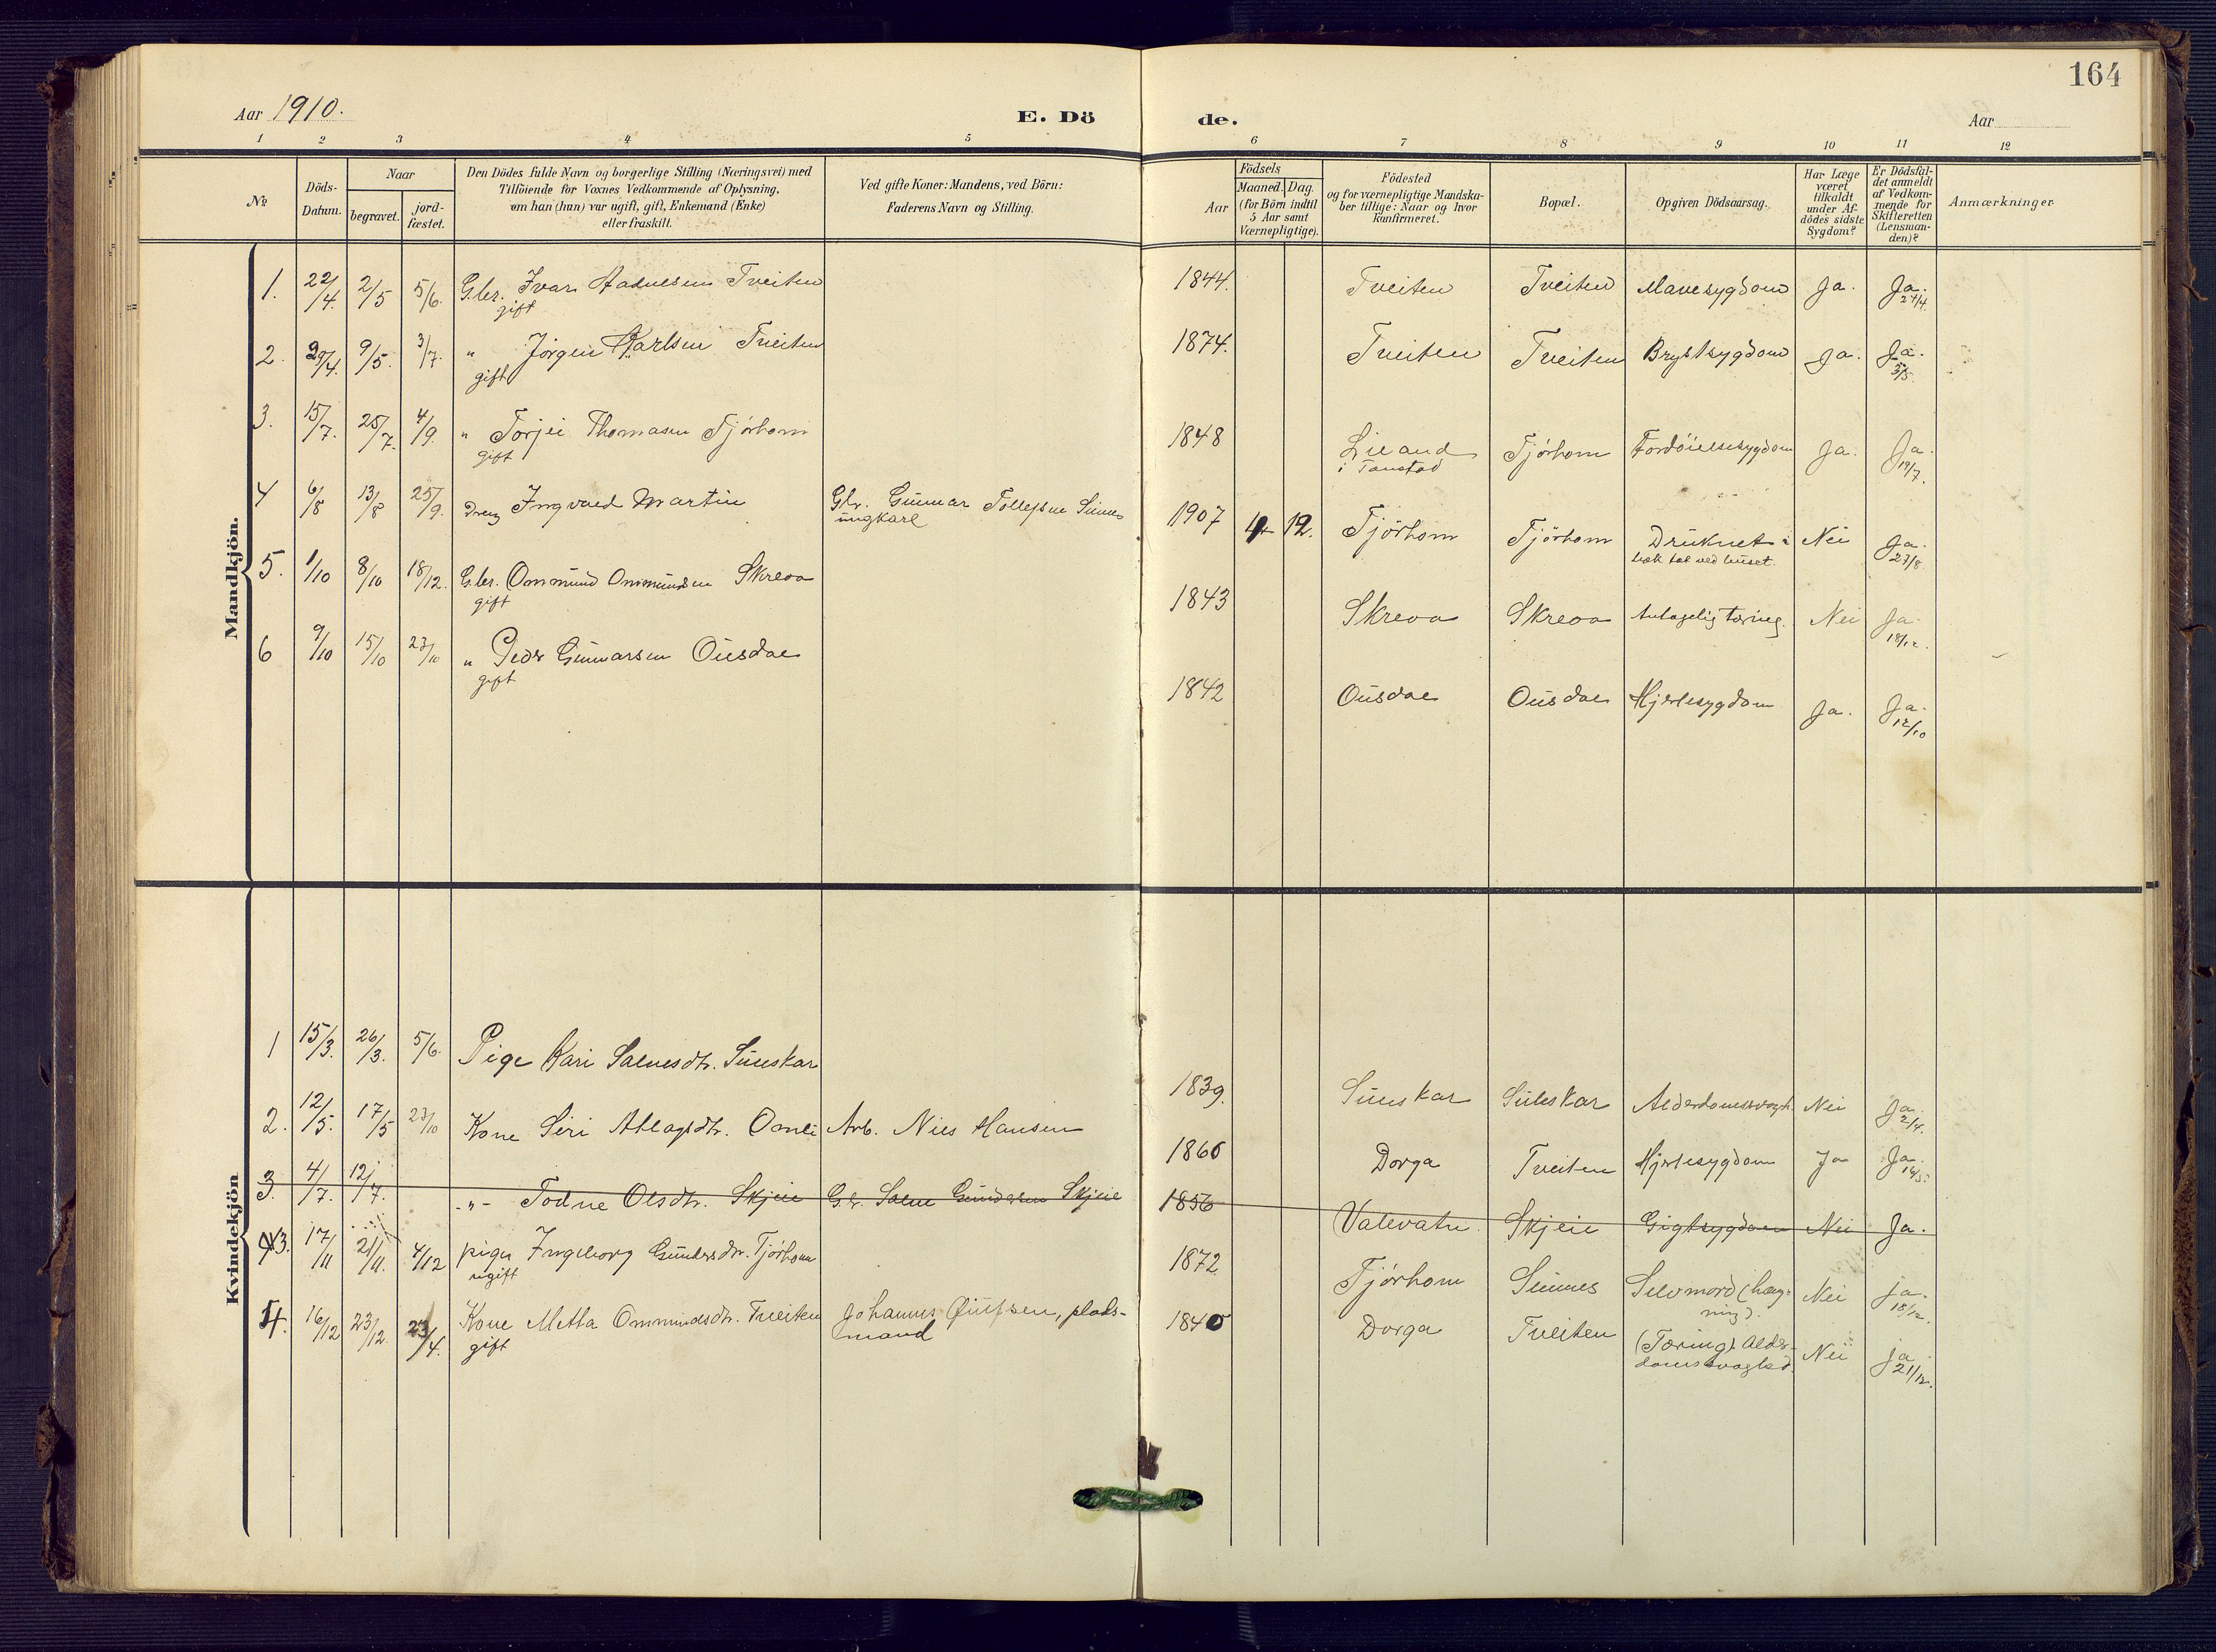 164
Aar 1910.
E. Dö de.
Aar
1 2 3 4 5 6 7 8 9 10 11 12
№
Döds-
Datum.
Naar
begravet.
jord-
fæstet.
Den Dödes fulde Navn og borgerlige Stilling (Næringsvei) med
Tilföiende for Voxnes Vedkommende af Oplysning,
om han (hun) var ugift, gift, Enkemand (Enke)
eller fraskilt.
Ved gifte Koner: Mandens, ved Börn:
Faderens Navn og Stilling.
Födsels
Aar
Maaned. Dag.
(for Börn indtil
5 Aar samt
Værnepligtige).
Födested
og for værnepligtige Mandska-
ber tillige: Naar og hvor
konfirmeret.
Bopæl.
Opgiven Dödsaarsag.
Har Læge
været
tilkaldt
under Af-
dödes sidste
Sygdom?
Er Dödsfal-
det anmeldt
af Vedkom-
mende for
Skifteretten
(Lensman-
den)?
Anmærkninger
Mandkjön.
1. 22/4. 2/5 5/6. Gbr. Ivar Aadnesen Tveiten 1844. Tveiten Tveiten Mavesygdom Ja. Ja.
gift 27/4.
2. 29/4. 9/5. 3/7. " Jørgen Karlsen Tveiten 1874. Tveiten Tveiten Brystsygdom Ja. Ja.
gift 3/5.
3. 15/7. 25/7. 4/9. " Torjei Thomasen Tjörhom 1848 Lieand Tjörhom Fordöielsessygdom Ja. Ja
gift i Tonstad 19/7.
4 6/8 13/8 25/9. Dreng Ingvald Martin Gbr. Gunnar Tollefsen Sinnes 1907 4 12. Tjörhom Tjörhom Druknet i Nei Ja.
ungkarl bæk tæt ved huset. 27/8
5. 1/10 8/10 18/12. Gbr. Ommund Ommundsen Skreoa 1843 Skreoa Skreoa Antagelig tæring. Nei Ja.
gift 18/12.
6 9/10 15/10 23/10 " Peder Gunnarsen Ousdal 1842 Ousdal Ousdal Hjertesygdom Ja. Ja.
gift 12/10
Kvindekjön
1 15/3. 26/3. 5/6. Pige Kari Salvesdtr. Suleskar 1839. Suleskar Suleskar Alderdomssvagh. Nei Ja.
2/4.
2. 12/5. 17/5 23/10 Kone Siri Atlagsdtr. Omli Arb. Nils Hansen 1860 Dorga Tveiten Hjertesygdom Ja Ja.
14/5.
3. 4/7. 12/7. -"- Todne Olsdtr. Skjeie G.br. Salve Gundersen Skjeie 1856 Valevatn Skjeie Gigtsygdom Nei Ja.
3. 17/11 21/11. 4/12 pige Ingeborg Gundersdtr. Tjörhom 1872 Tjörhom Sinnes Selvmord (hæng- Nei ja.
ugift ning). 18/12.
4. 16/12 23/12. 23/4. Kone Metta Ommundsdtr. Tveiten Johannes Omfsen, plads- 1840 Dorga Tveiten (Tæring) Alder- Nei ja
gift mand domssvaghed. 21/12.